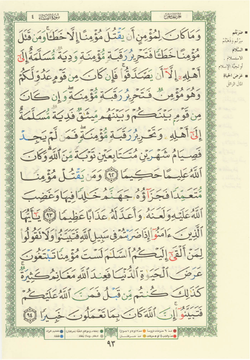 وَمَا كَانَ لِمُؤْمِنٍ أَن يَقْتُلَ مُؤْمِنًا إِلَّا خَطَـًٔا وَمَن قَتَلَ
مُؤْمِنًا خَطَـًٔا فَتَحْرِيرُ رَقَبَةٍ مُّؤْمِنَةٍ وَدِيَةٌ مُّسَلَّمَةٌ إِلَىٰٓ
أَهْلِهِۦٓ إِلَّآ أَن يَصَّدَّقُوا۟ فَإِن كَانَ مِن قَوْمٍ عَدُوٍّ لَّكُمْ
وَهُوَ مُؤْمِنٌ فَتَحْرِيرُ رَقَبَةٍ مُّؤْمِنَةٍ وَإِن كَانَ
مِن قَوْمٍۭ بَيْنَكُمْ وَبَيْنَهُم مِّيثَـٰقٌ فَدِيَةٌ مُّسَلَّمَةٌ
إِلَىٰٓ أَهْلِهِۦ وَتَحْرِيرُ رَقَبَةٍ مُّؤْمِنَةٍ فَمَن لَّمْ يَجِدْ
فَصِيَامُ شَهْرَيْنِ مُتَتَابِعَيْنِ تَوْبَةً مِّنَ ٱللَّهِ وَكَانَ
ٱللَّهُ عَلِيمًا حَكِيمًا ٩٢ وَمَن يَقْتُلْ مُؤْمِنًا
مُّتَعَمِّدًا فَجَزَآؤُهُۥ جَهَنَّمُ خَـٰلِدًا فِيهَا وَغَضِبَ
ٱللَّهُ عَلَيْهِ وَلَعَنَهُۥ وَأَعَدَّ لَهُۥ عَذَابًا عَظِيمًا ٩٣ يَـٰٓأَيُّهَا
ٱلَّذِينَ ءَامَنُوٓا۟ إِذَا ضَرَبْتُمْ فِى سَبِيلِ ٱللَّهِ فَتَبَيَّنُوا۟ وَلَا تَقُولُوا۟
لِمَنْ أَلْقَىٰٓ إِلَيْكُمُ ٱلسَّلَـٰمَ لَسْتَ مُؤْمِنًا تَبْتَغُونَ
عَرَضَ ٱلْحَيَوٰةِ ٱلدُّنْيَا فَعِندَ ٱللَّهِ مَغَانِمُ كَثِيرَةٌ
كَذَٰلِكَ كُنتُم مِّن قَبْلُ فَمَنَّ ٱللَّهُ عَلَيْكُمْ
فَتَبَيَّنُوٓا۟ إِنَّ ٱللَّهَ كَانَ بِمَا تَعْمَلُونَ خَبِيرًا ٩٤
٩٣